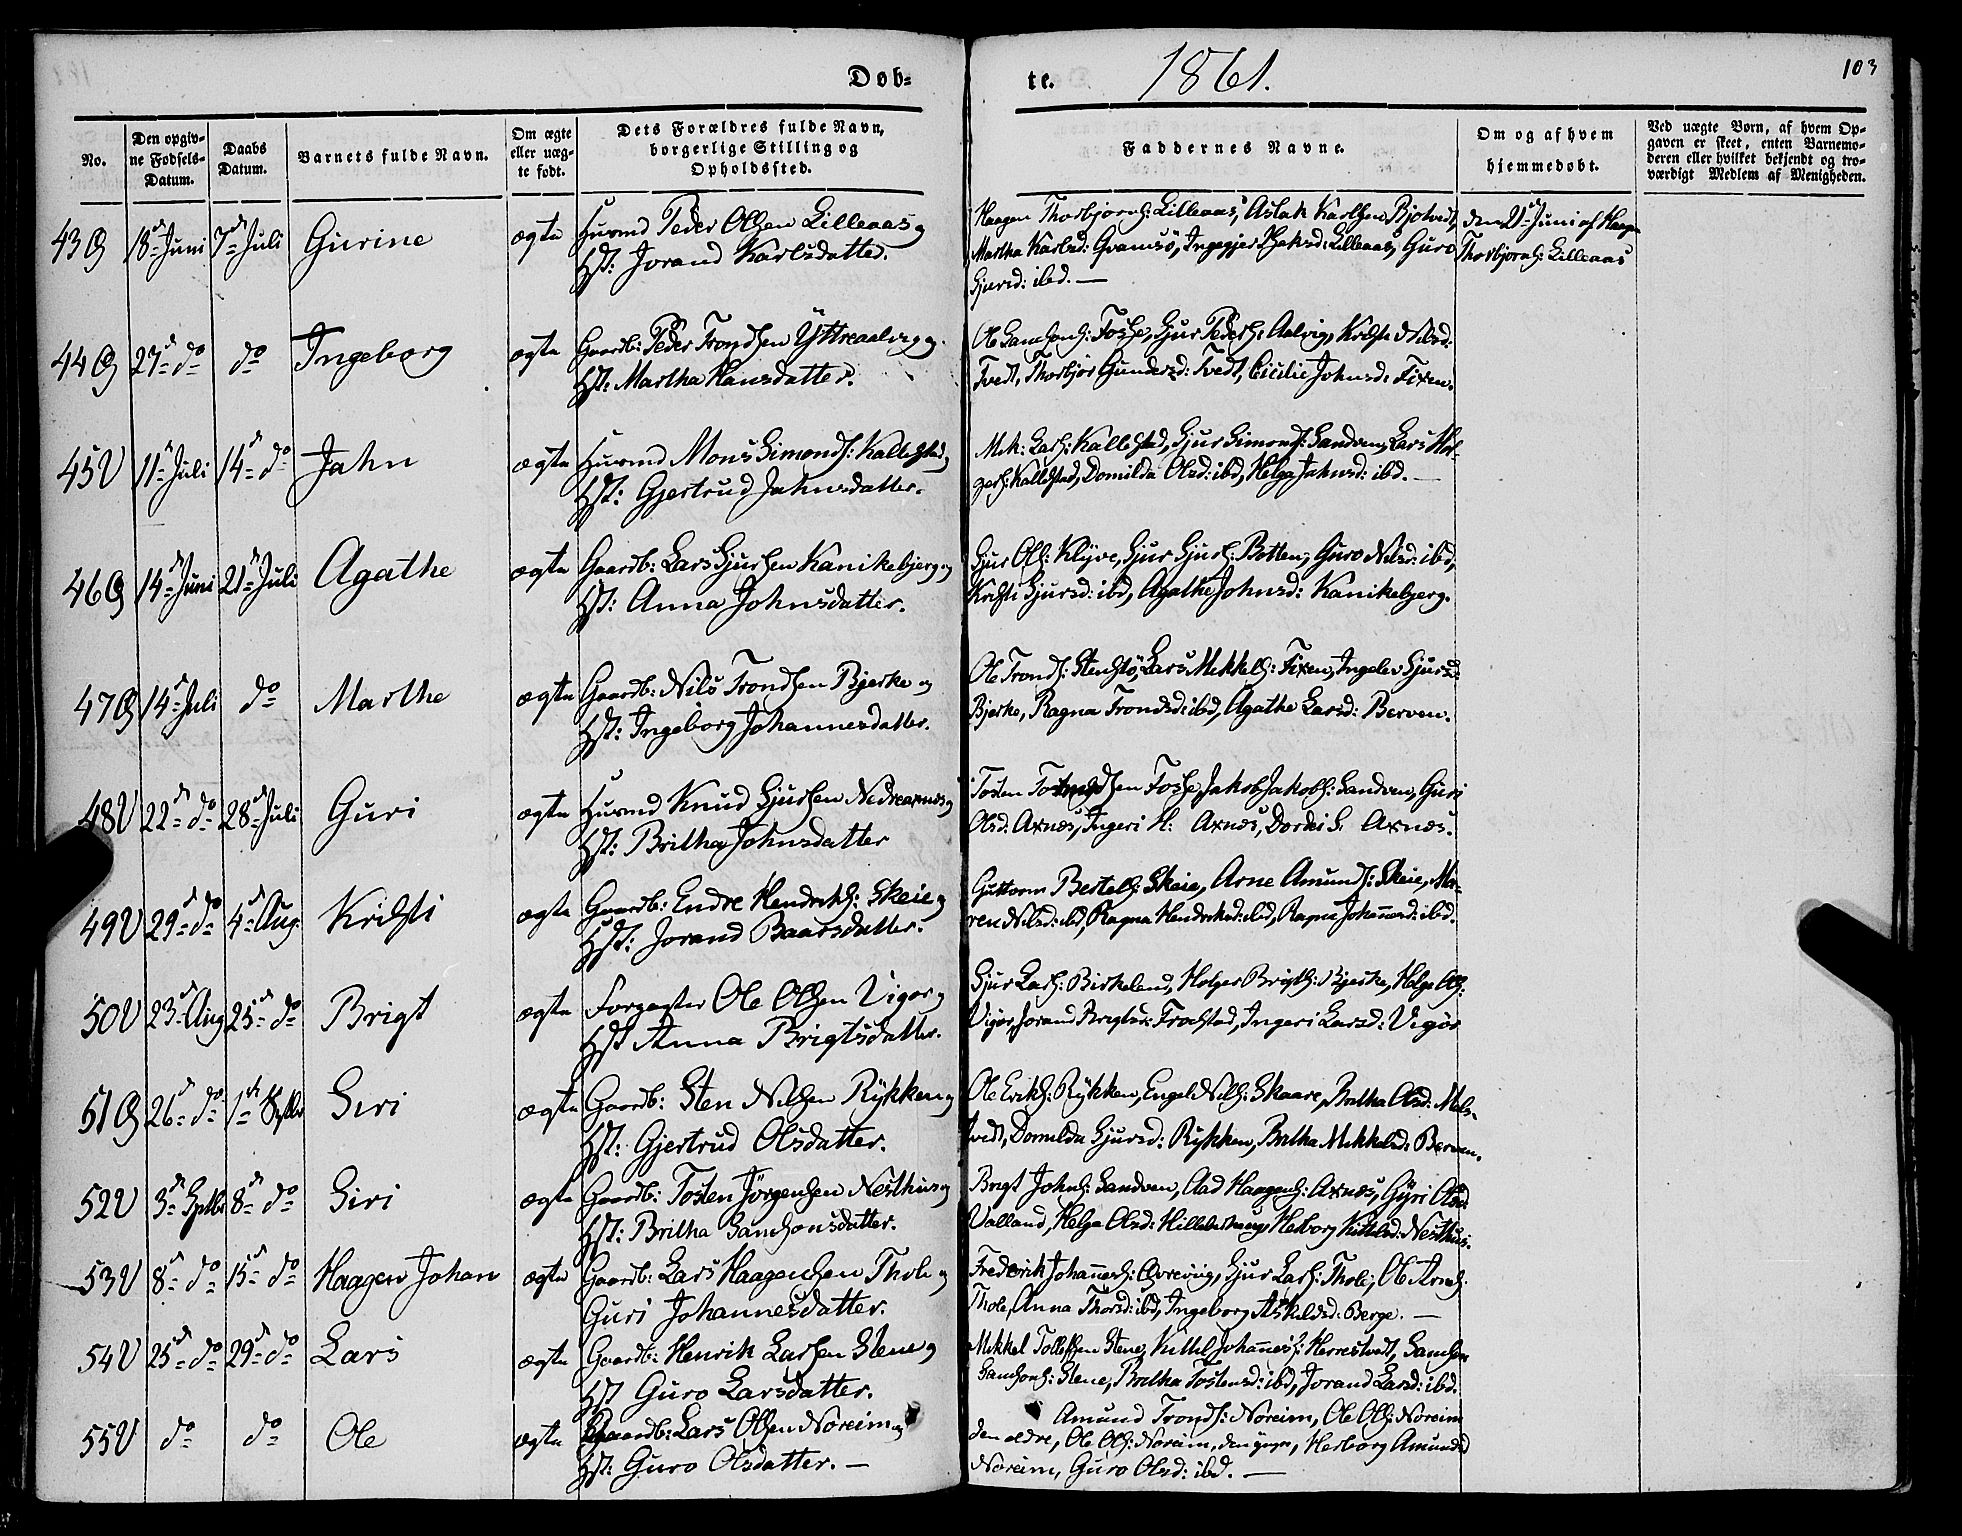 Døb=
te.
1861.
103
No.
Den opgiv=
ne Fødsels=
Datum.
Daabs
Datum.
Barnets fulde Navn.
Om ægte
eller uæg=
te født.
Dets Forældres fulde Navn,
borgerlige Stilling og
Opholdssted.
Faddernes Navne.
Om og af hvem
hjemmedøbt.
Ved uægte Børn, af hvem Op=
gaven er skeet, enten Barnemo=
deren eller hvilket bekjendt og tro=
værdigt Medlem af Menigheden.
43 18d Juni 7d Juli Gurine ægte Huusmd Peder Olssen Lilleaas og
Hst: Jorand Karlsdatter.
Haagen Thorbjørns: Lilleaas, Aslak Karlssen Bjotvedt,
Martha Karlsd: Gvamsø, Ingegjer Lilleaas, Guro
Sjursd: ibd. —
den 21d Juni af Haagen
Thorbjørns: Lilleaas
44 27d do do Ingeborg ægte Gaardb: Peder Trondssen Yttreaalvig og
Hst: Martha Hansdatter.
Ole Samsons: Fosse, Sjur Peders: Aalvig, Kristi Nilsd:
Tvedt, Thorbjør Gundersd: Tvedt, Cicilie Johnsd: Fixen.
45 U 11d Juli 14d do Jahn ægte Huusmd Mons Simonds: Kallestad og
Hst: Gjertrud Jahnsdatter.
Mik: Lars: Kallestad, Sjur Simonds: Sandven, Lars Hol-
gers: Kallestad, Domilda Olsd: ibd, Helga Jahnsd: ibd. —
46 14d Juni 21d Juli Agathe ægte Gaardb: Lars Sjurssen Kanikebjerg og
Hst: Anna Johnsdatter.
Sjur Ols: Klyve, Sjur Sjurs: Botten, Guro Nilsd: ibd,
Kristi Sjursd: ibd, Agathe Johnsd: Kanikebjerg.
47 14d Juli do Marthe ægte Gaardb: Nils Trondssen Bjerke og
Hst: Ingeborg Johannesdatter.
Ole Tronds: Stenstø, Lars Mikkels: Fixen, Ingelev Sjursd:
Bjerke, Ragna Trondsd: ibd, Agathe Larsd: Berven.
48 U 22d do 28d Juli Guri ægte Huusmd Knud Sjurssen Nedreaxnes og
Hst: Britha Johnsdatter
Tosten Fosse, Jakob Jakobs: Sandven, Guri
Olsd: Axnes, Ingeri H: Axnes, Dordei S. Axnes.
49 U 29d do 4d Aug. Kristi ægte Gaardb: Endre Hendriks: Skeie og
Hst: Jorand Baarsdatter.
Guttorm Bertels: Skeie, Arne Amunds: Skeie, Ma-
ren Nilsd: ibd, Ragna Hendriksd: ibd, Ragna Johannesd: ibd.
50 U 23d Aug 25d do Brigt ægte Forpagter Ole Olssen Vigør og
Hst Anna Brigtsdatter.
Sjur Lars: Birkeland, Holger Brigts: Bjerke, Helge Ols:
Vigør, Jorand Brigtsd: Frøstad, Ingeri Larsd: Vigør
51 26d do 1ste Septbr Siri ægte Gaardb: Sten Nilssen Rykken og
Hst: Gjertrud Olsdatter.
Ole Eriks: Rykken, Engel Nils: Skaare, Britha Olsd: Mels-
tvedt, Domilda Sjursd: Rykken, Britha Mikkelsd: Berven.
52 U 3d Septbr 8d do Siri ægte Gaardb: Tosten Jørgenssen Nesthus og
Hst: Britha Samsonsdatter.
Brigt Johns: Sandven, Aad Haagens: Axnes, Gyri Olsd:
Valland, Helga Olsd: Herborg Kittilsd: Nesthus.
53 U 8d do 15d do Haagen Johan ægte Gaardb: Lars Haagenssen Thole og
Guri Johannesdatter.
Frederik Johannes: Øvrevig, Sjur Lars: Thole, Ole Arnes:
Thole, Anna Thorsd: ibd, Ingeborg Askildsd: Berge. —
54 U 25d do 29d do Lars ægte Gaardb: Henrik Larssen Stene og
Hst Guro Larsdatter.
Mikkel Tollefssen Stene, Kittil Johannes: Herrestvedt, Samson
Samsons: Stene, Britha Tostensd: ibd, Jorand Larsd: ibd.
55 U do do Ole ægte Gaardb: Lars Olssen Noreim og
Hst: Guro Olsdatter. —
Amund Tronds: Noreim, Ole Ols: Noreim
den ældre, Ole Ols: Noreim, den yngre, Herborg Amundsd
Noreim, Guro Olsd: ibd. —